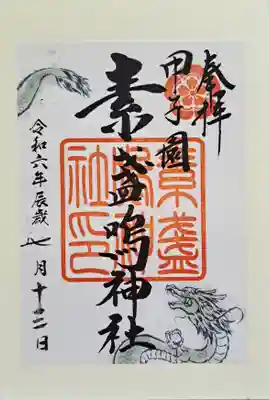 奉拝
甲子園
素盞嗚神社
令和六年辰歳 七月十日
素盞
嗚神
社印